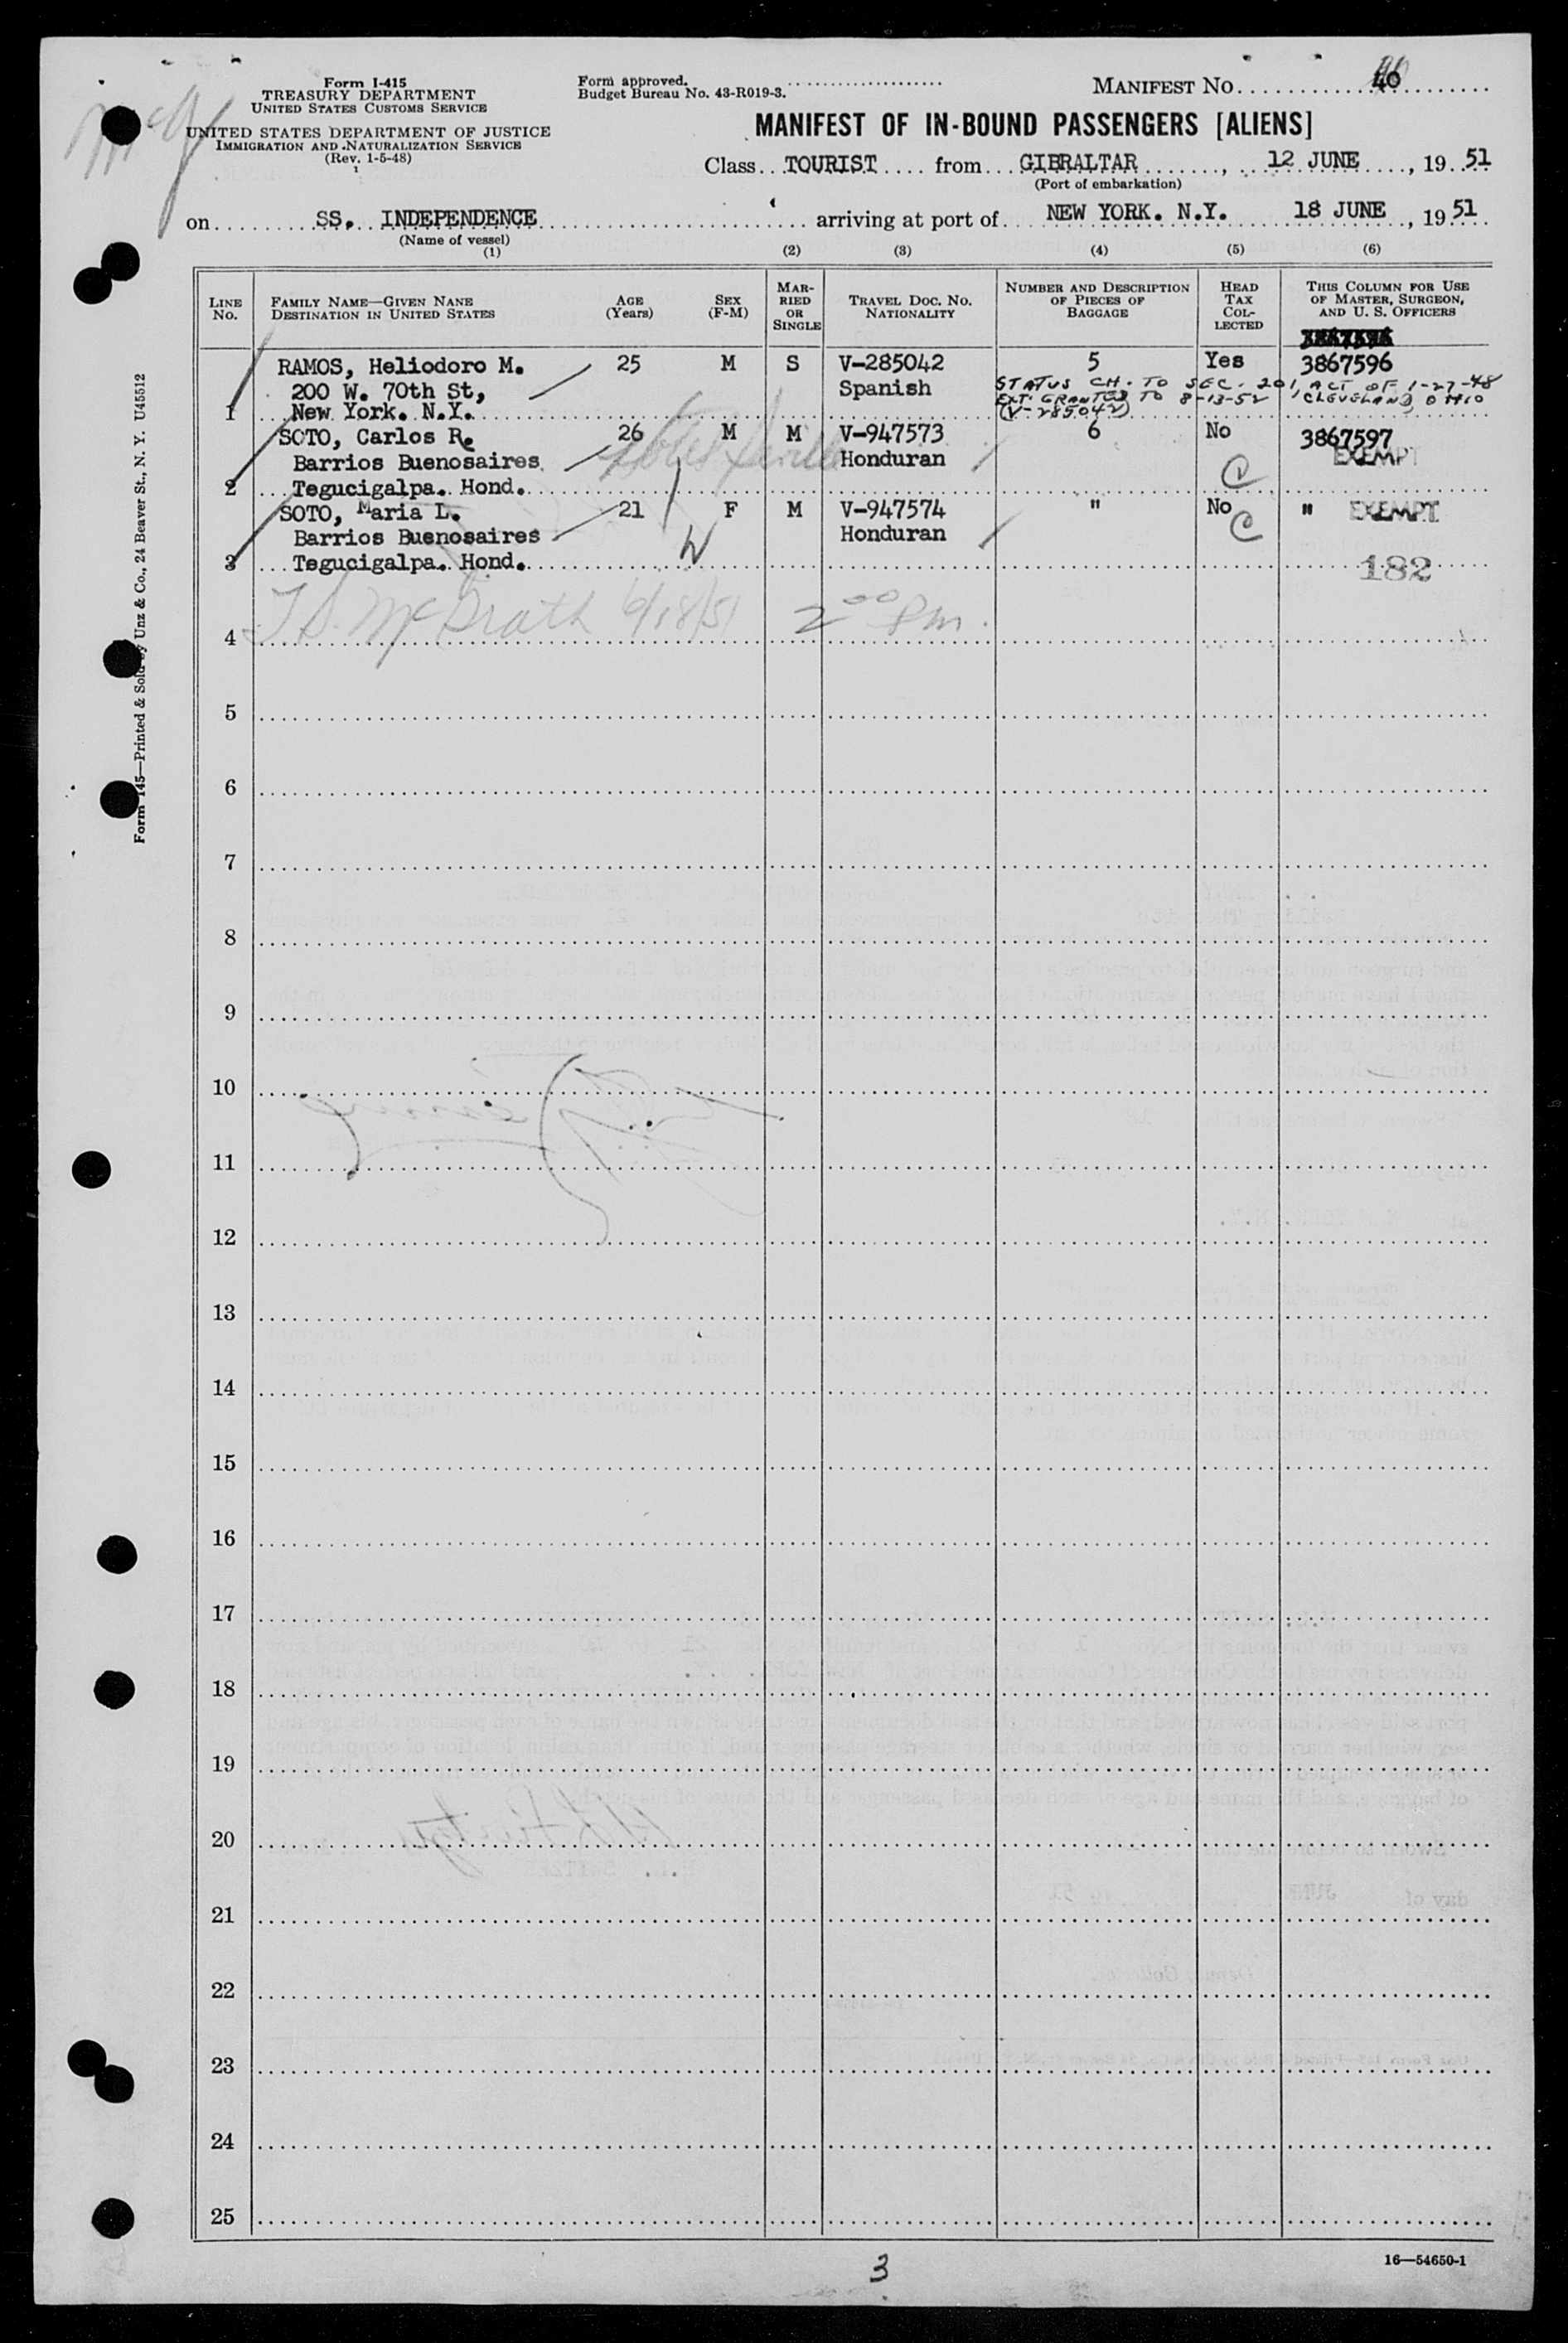 Form I-415
TREASURY DEPARTMENT
UNITED STATES CUSTOMS SERVICE
UNITED STATES DEPARTMENT OF JUSTICE
IMMIGRATION AND NATURALIZATION SERVICE
(Rev. 1-5-48)
Form approved.
Budget Bureau No. 43-R019-3.
MANIFEST NO.
MANIFEST OF IN-BOUND PASSENGERS [ALIENS]
Class TOURIST from GIBRALTAR, 12 JUNE, 19 51
(Port of embarkation)
on SS. INDEPENDENCE arriving at port of NEW YORK. N.Y. 18 JUNE, 19 51
(Name of vessel)
(1) (2) (3) (4) (5) (6)
LINE No.
FAMILY NAME—GIVEN NANE
DESTINATION IN UNITED STATES
AGE (Years)
SEX (F-M)
MAR-RIED OR SINGLE
TRAVEL DOC. NO. NATIONALITY
NUMBER AND DESCRIPTION OF PIECES OF BAGGAGE
HEAD TAX COL-LECTED
THIS COLUMN FOR USE OF MASTER, SURGEON, AND U. S. OFFICERS
RAMOS, Heliodoro M. 25 M S V-285042 5 Yes 3867596
200 W. 70th St, Spanish STATUS CH. TO SEC. 201, ACT OF 1-27-48
EXT. GRANTED TO 8-13-52 CLEVELAND OHIO
1 New York. N.Y. (V-285042)
SOTO, Carlos R. 26 M M V-947573 6 No 3867597
Barrios Buenosaires Honduran EXEMPT
2 Tegucigalpa. Hond.
SOTO, Maria L. 21 F M V-947574 " No " EXEMPT
Barrios Buenosaires Honduran
3 Tegucigalpa. Hond. W 182
4 McGrath 6/18/51 2 00 Pm.
5
6
7
8
9
10
11
12
13
14
15
16
17
18
19
20
21
22
23
24
25
3
16—54650-1
Form 145—Printed & Sold by Unz & Co., 24 Beaver St., N. Y. U45512